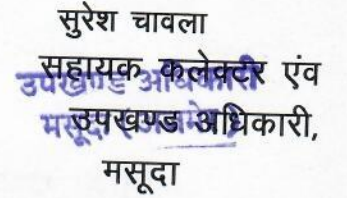 सुरेश चावला
सहायक कलेक्टर एंव
उपखण्ड अधिकारी
उपखण्ड अधिकारी,
मसूदा
मसूदा